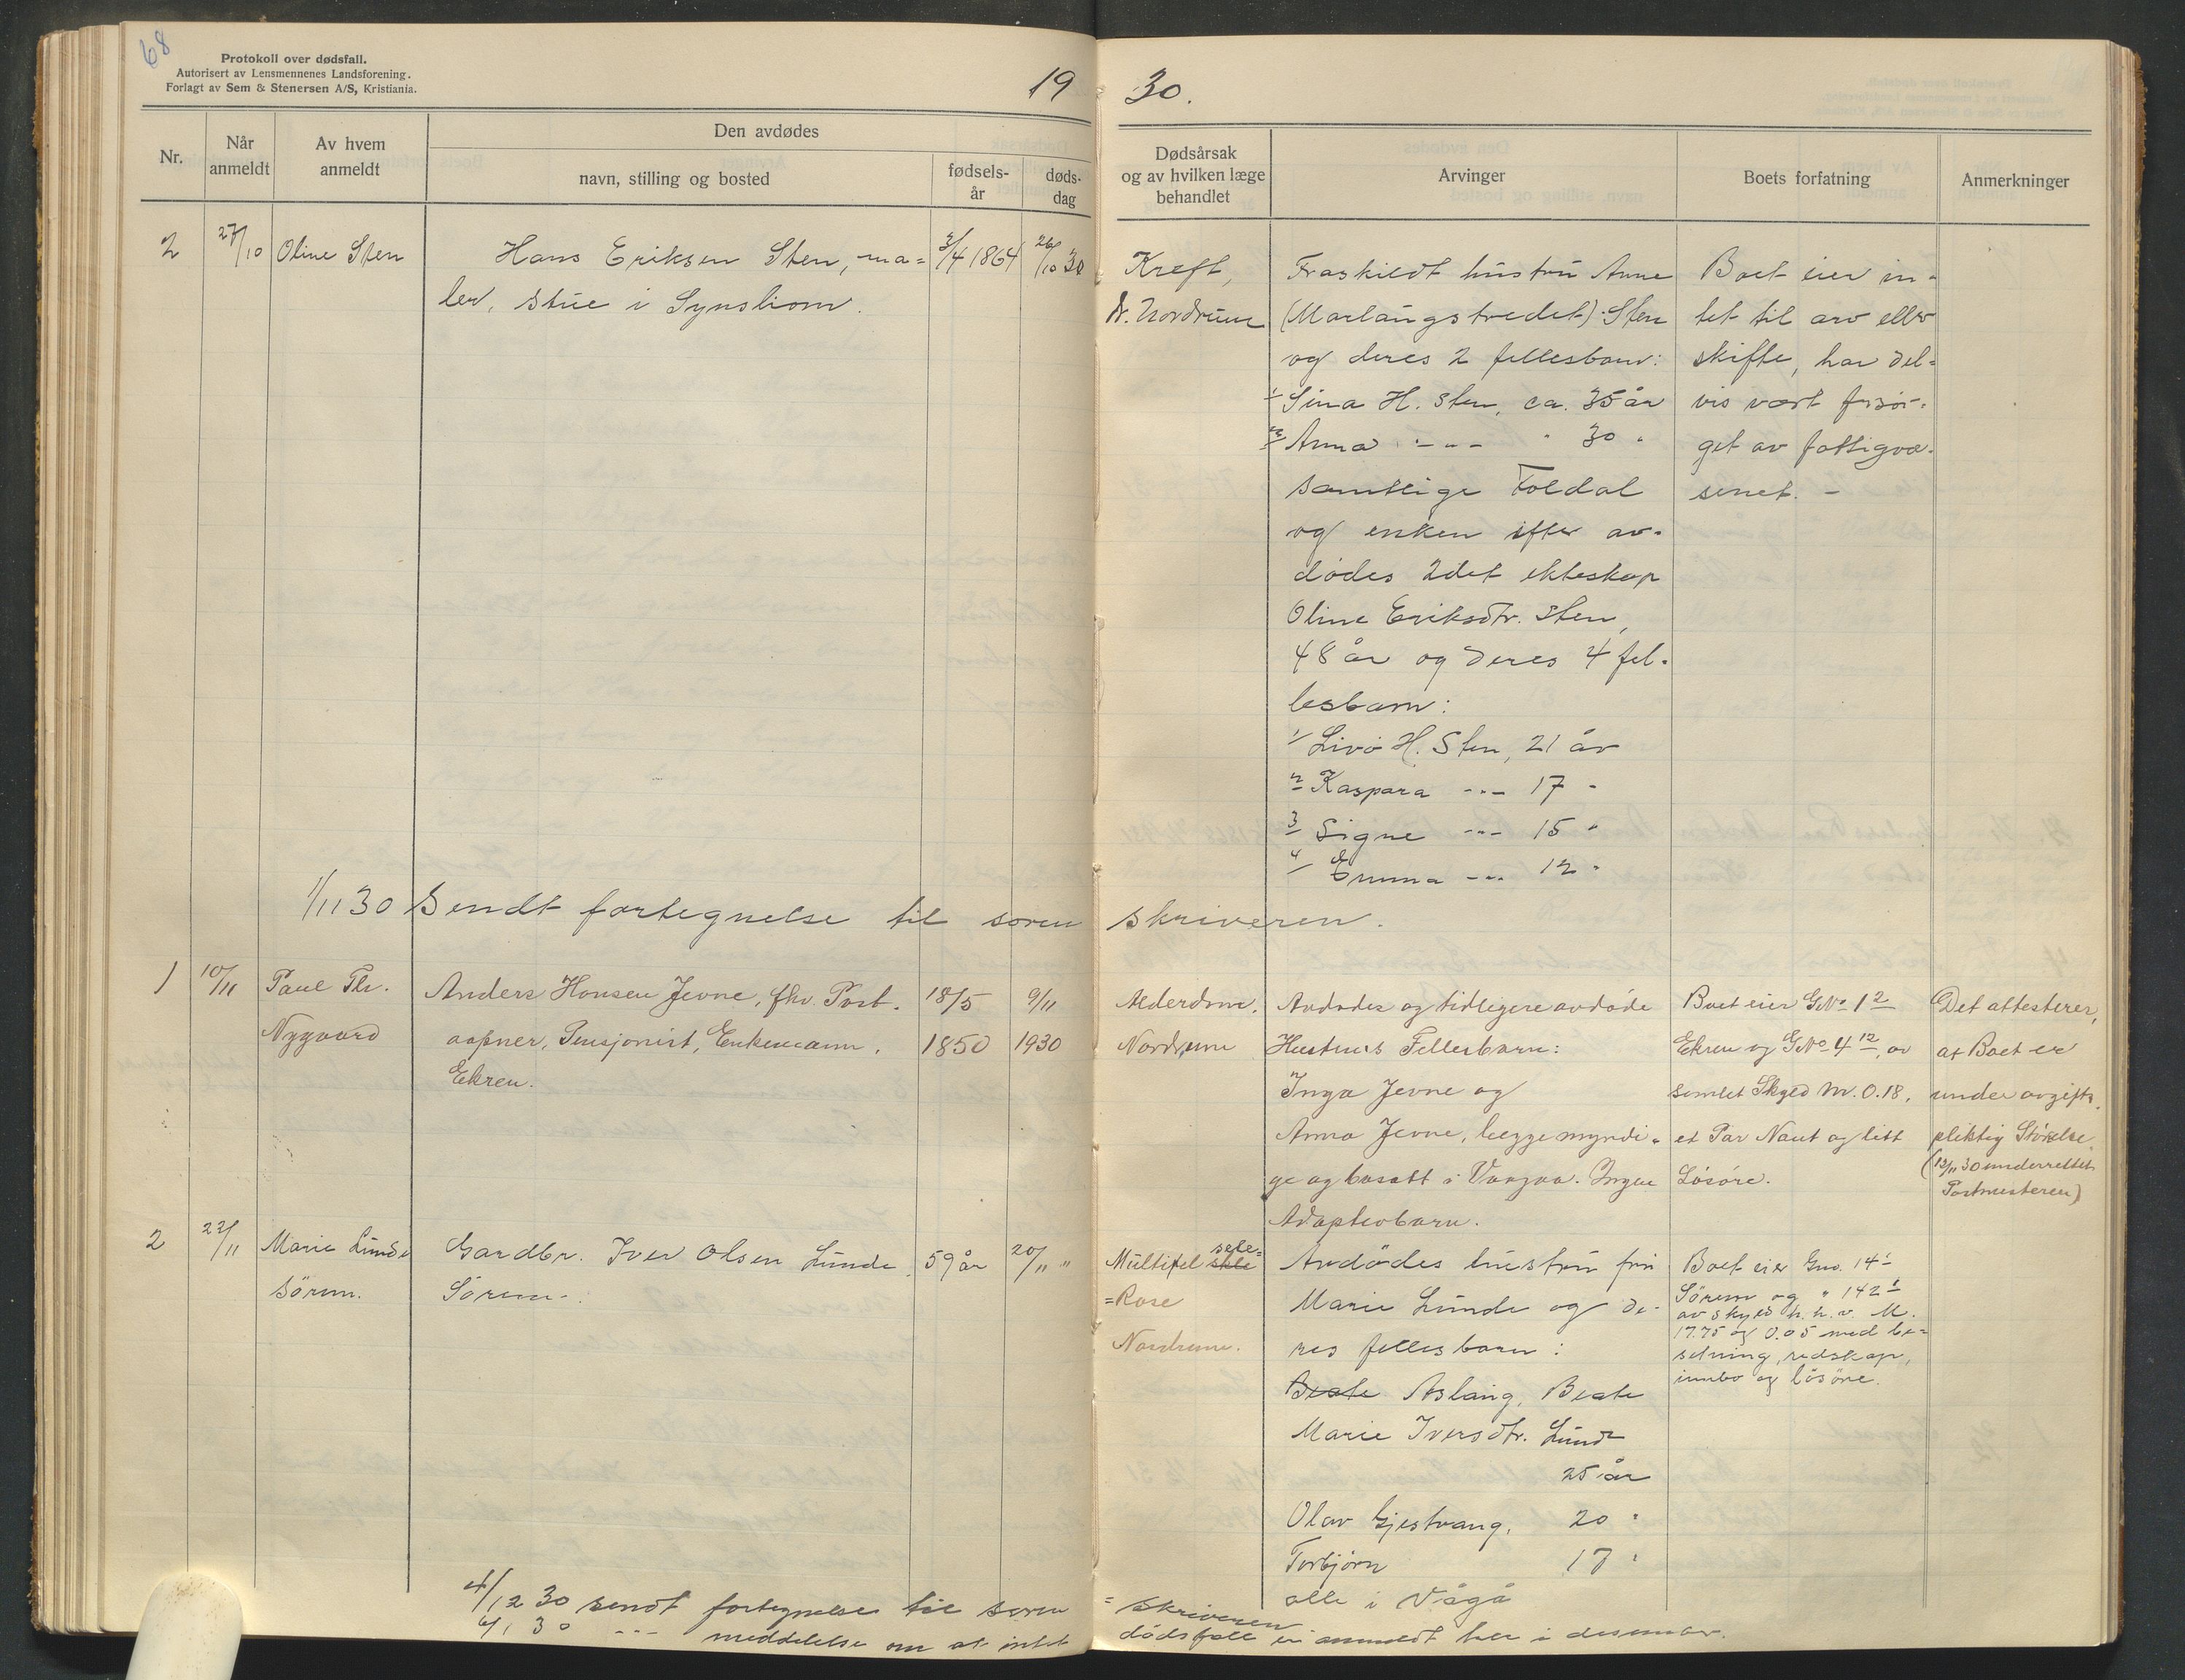 68
Protokoll over dødsfall.
Autorisert av Lensmennenes Landsforening.
Forlagt av Sem & Stenersen A/S, Kristiania.
19 30.
Nr.
Når
anmeldt
Av hvem
anmeldt
Den avdødes
navn, stilling og bosted
fødsels-
år
døds-
dag
Dødsårsak
og av hvilken læge
behandlet
Arvinger
Boets forfatning
Anmerkninger
2
27/10
Oline Sten
Hans Eriksen Sten, ma=
ler, stue i Synsliom.
3/4 1864
26/10 30
Kreft,
dr. Nordrum
Fraskildt hustru Anne
(Marlaugstredet) Sten
og deres 2 fellesbarn:
1/ Sina H. Sten, ca. 35 år
2/ Anna -"- " 30 "
samtlige Foldal
og enken efter av-
dødes 2det ekteskap
Oline Eriksdtr. Sten,
48 år og deres 4 fel-
lesbarn:
1/ Livø H. Sten, 21 år
2/ Kaspara -"- 17 "
3/ Signe -"- 15 "
4/ Emma -"- 12 "
Boet eier in-
tet til arv eller
skifte, har del-
vis vært forsør-
get av fattigvæ-
senet. -
1/11 30 Sendt fortegnelse til soren skriveren.
1
10/11
Paul Th.
Nygaard
Anders Hansen Jevne, fhv. Post-
aapner, Pensjonist, Enkemann,
Ekren.
18/5
1850
9/11
1930
Alderdom.
Nordrum
Avdødes og tidligere avdøde
Hustrus Fellesbarn:
Inga Jevne og
Anna Jevne, begge myndi-
ge og bosatt i Vaagaa. Ingen
Adoptivbarn.
Boet eier GNo 1 2
Ekren og GNo 4 12, av
samlet Skyld M. 0.18,
et Par Naut og litt
Løsøre.
Det attesteres,
at Boet er
under avgifts-
pliktig Størrelse.
(12/11 30 underrettet
Postmesteren)
2
22/11
Marie Lunde
Sørem.
Gardbr. Iver Olsen Lunde
Sørem.
59 år
20/11 "
Multipel skle sele=
=Rose
Nordrum.
Avdødes hustru fru
Marie Lunde og de-
res fellesbarn:
Beate Aslaug, Beate
Marie Iversdtr. Lunde
25 år
Olav Gjestvang, 20 "
Torbjørn 17 "
alle i Vågå
Boet eier Gno. 14 1
Sørem og " 142 1
av skyld h.h.v. M.
17.75 og 0.05 med be-
setning, redskap,
innbo og løsøre.
4/12 30 sendt fortegnelse til soren = skriveren
6/1 3 -"- meddelelse om at intet dødsfall er anmeldt her i desember.